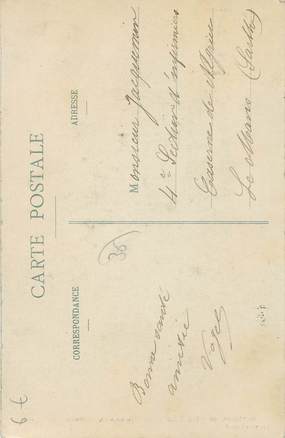 CARTE POSTALE
CORRESPONDANCE
ADRESSE
Bonne santé
amitié
Vogel
38
Monsieur Jacquemin
4e Section d'infirmiers
Caserne de
Le Mans (Sarthe)
6 €